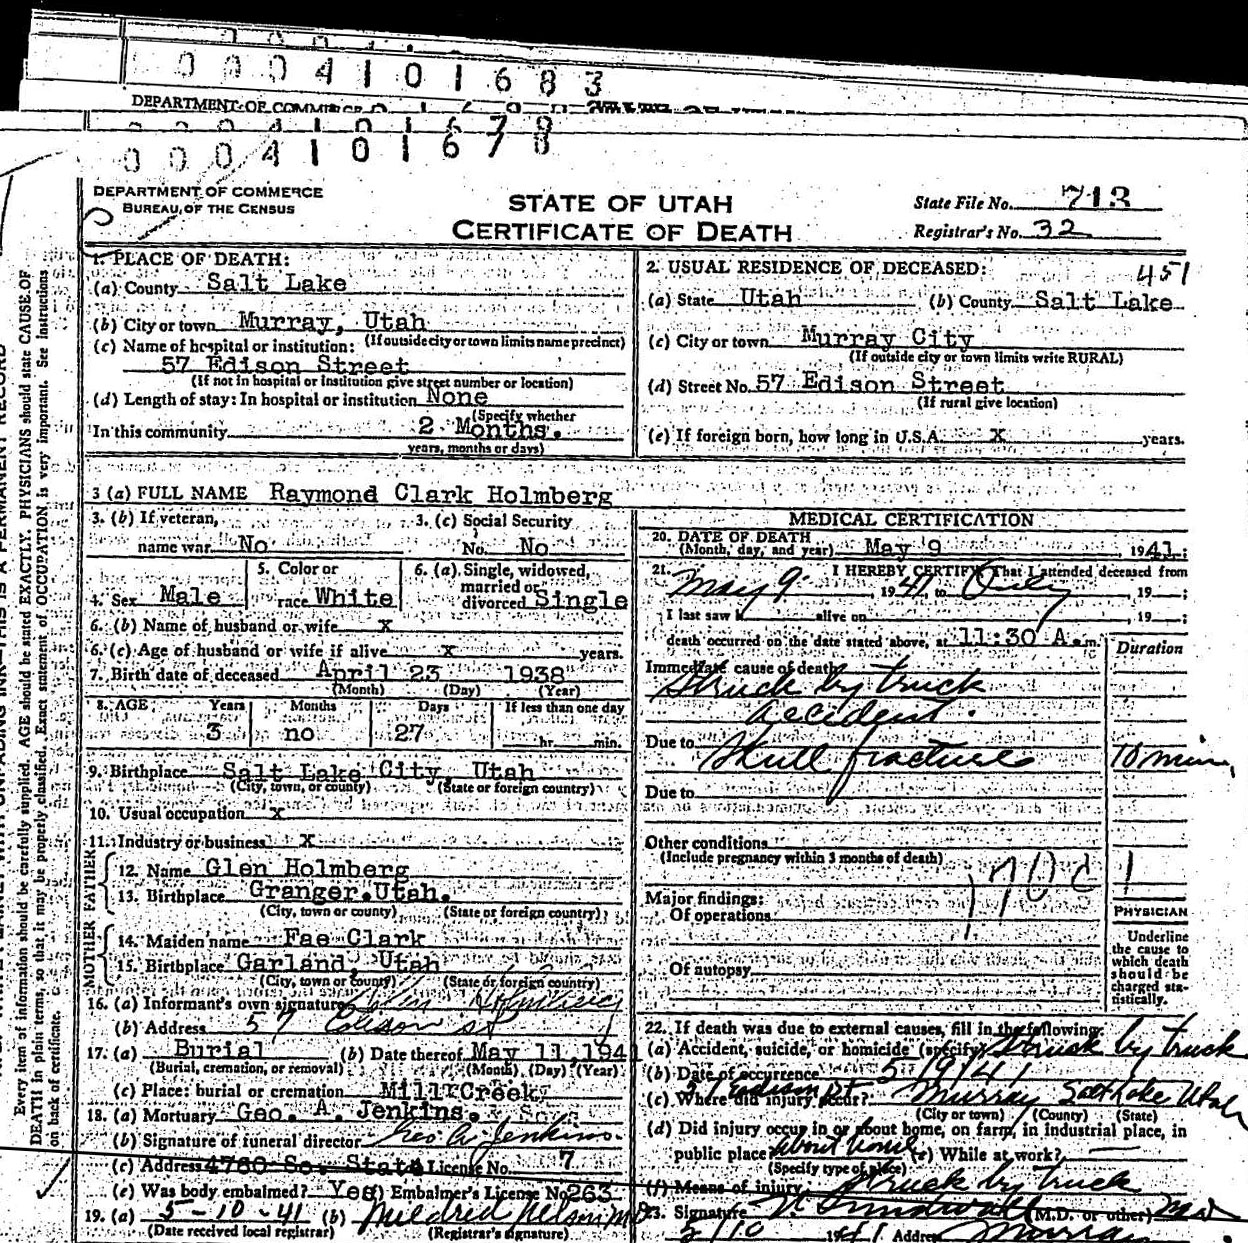 0 0 0 4 1 0 1 6 8 3
DEPARTMENT OF COMMERCE
0 0 0 4 1 0 1 6 7 8
DEPARTMENT OF COMMERCE
BUREAU OF THE CENSUS
STATE OF UTAH
CERTIFICATE OF DEATH
State File No. 713
Registrar's No. 32
1. PLACE OF DEATH:
(a) County Salt Lake
(b) City or town Murray, Utah
(If outside city or town limits name precinct)
(c) Name of hospital or institution:
57 Edison Street
(If not in hospital or institution give street number or location)
(d) Length of stay: In hospital or institution None
(Specify whether
In this community 2 Months.
years, months or days)
2. USUAL RESIDENCE OF DECEASED: 451
(a) State Utah (b) County Salt Lake
(c) City or town Murray City
(If outside city or town limits write RURAL)
(d) Street No. 57 Edison Street
(If rural give location)
(e) If foreign born, how long in U.S.A. X years.
3 (a) FULL NAME Raymond Clark Holmberg
3. (b) If veteran, 3. (c) Social Security
name war No No. No
4. Sex Male 5. Color or race White 6. (a) Single, widowed, married or divorced Single
6. (b) Name of husband or wife x
6. (c) Age of husband or wife if alive x years.
7. Birth date of deceased April 23 1938
(Month) (Day) (Year)
8. AGE Years Months Days If less than one day
3 no 27 hr. min.
9. Birthplace Salt Lake City, Utah
(City, town, or county) (State or foreign country)
10. Usual occupation x
11. Industry or business x
FATHER
12. Name Glen Holmberg
13. Birthplace Granger.Utah.
(City, town or county) (State or foreign country)
MOTHER
14. Maiden name Fae Clark
15. Birthplace Garland, Utah
(City, town or county) (State or foreign country)
16. (a) Informant's own signature Holmberg
(b) Address 57 Edison St
17. (a) Burial (b) Date thereof May 11,1941
(Burial, cremation, or removal) (Month) (Day) (Year)
(c) Place: burial or cremation Mill Creek
18. (a) Mortuary Geo. A. Jenkins.
(b) Signature of funeral director Geo A. Jenkins.
(c) Address 4760 So. State License No. 7
(e) Was body embalmed? Yes (f) Embalmer's License No. 263
19. (a) 5-10-41 (b) Mildred Nelson
(Date received local registrar) (Registrar's signature)
MEDICAL CERTIFICATION
20. DATE OF DEATH
(Month, day, and year) May 9 1941;
21. I HEREBY CERTIFY, That I attended deceased from
May 9 1941, to Only, 19 ;
I last saw h alive on , 19 ;
death occurred on the date stated above, at 11:30 A.m. Duration
Immediate cause of death
Struck by truck
accident.
Due to Skull fracture 10 min.
Due to
Other conditions
(Include pregnancy within 3 months of death)
170c 1
Major findings:
Of operations
Of autopsy
PHYSICIAN
Underline
the cause to
which death
should be
charged sta-
tistically.
22. If death was due to external causes, fill in the following:
(a) Accident, suicide, or homicide (specify) Struck by truck
(b) Date of occurrence 5/9/41
(c) Where did injury occur? 57 Edison St Murray Salt Lake Utah
(City or town) (County) (State)
(d) Did injury occur in or about home, on farm, in industrial place, in
public place? about home (e) While at work?
(Specify type of place)
(f) Means of injury Struck by truck
23. Signature (M.D. or other) MD
5/10 1941 Address Murray
Every item of information should be carefully supplied. AGE should be stated EXACTLY. PHYSICIANS should state CAUSE OF
DEATH in plain terms, so that it may be properly classified. Exact statement of OCCUPATION is very important. See instructions
on back of certificate.